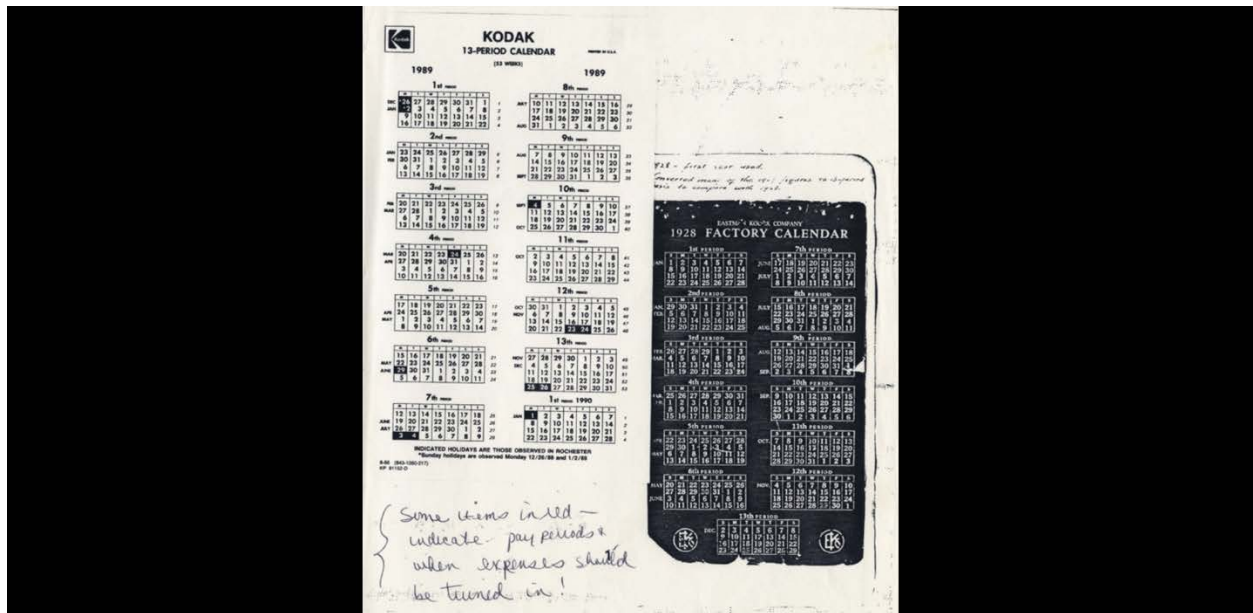 Kodak
KODAK
13-PERIOD CALENDAR
PRINTED IN U.S.A.
(53 WEEKS)
1989
1989
1st PERIOD
M T W T F S S
DEC *26 27 28 29 30 31 1 1
JAN *2 3 4 5 6 7 8 2
9 10 11 12 13 14 15 3
16 17 18 19 20 21 22 4
2nd PERIOD
M T W T F S S
JAN 23 24 25 26 27 28 29 5
FEB 30 31 1 2 3 4 5 6
6 7 8 9 10 11 12 7
13 14 15 16 17 18 19 8
3rd PERIOD
M T W T F S S
FEB 20 21 22 23 24 25 26 9
MAR 27 28 1 2 3 4 5 10
6 7 8 9 10 11 12 11
13 14 15 16 17 18 19 12
4th PERIOD
M T W T F S S
MAR 20 21 22 23 24 25 26 13
APR 27 28 29 30 31 1 2 14
3 4 5 6 7 8 9 15
10 11 12 13 14 15 16 16
5th PERIOD
M T W T F S S
17 18 19 20 21 22 23 17
APR 24 25 26 27 28 29 30 18
MAY 1 2 3 4 5 6 7 19
8 9 10 11 12 13 14 20
6th PERIOD
M T W T F S S
15 16 17 18 19 20 21 21
MAY 22 23 24 25 26 27 28 22
JUNE 29 30 31 1 2 3 4 23
5 6 7 8 9 10 11 24
7th PERIOD
M T W T F S S
12 13 14 15 16 17 18 25
JUNE 19 20 21 22 23 24 25 26
JULY 26 27 28 29 30 1 2 27
3 4 5 6 7 8 9 28
8th PERIOD
M T W T F S S
JULY 10 11 12 13 14 15 16 29
17 18 19 20 21 22 23 30
24 25 26 27 28 29 30 31
AUG 31 1 2 3 4 5 6 32
9th PERIOD
M T W T F S S
AUG 7 8 9 10 11 12 13 33
14 15 16 17 18 19 20 34
21 22 23 24 25 26 27 35
SEPT 28 29 30 31 1 2 3 36
10th PERIOD
M T W T F S S
SEPT 4 5 6 7 8 9 10 37
11 12 13 14 15 16 17 38
18 19 20 21 22 23 24 39
OCT 25 26 27 28 29 30 1 40
11th PERIOD
M T W T F S S
OCT 2 3 4 5 6 7 8 41
9 10 11 12 13 14 15 42
16 17 18 19 20 21 22 43
23 24 25 26 27 28 29 44
12th PERIOD
M T W T F S S
OCT 30 31 1 2 3 4 5 45
NOV 6 7 8 9 10 11 12 46
13 14 15 16 17 18 19 47
20 21 22 23 24 25 26 48
13th PERIOD
M T W T F S S
NOV 27 28 29 30 1 2 3 49
DEC 4 5 6 7 8 9 10 50
11 12 13 14 15 16 17 51
18 19 20 21 22 23 24 52
25 26 27 28 29 30 31 53
1st PERIOD 1990
M T W T F S S
JAN 1 2 3 4 5 6 7 1
8 9 10 11 12 13 14 2
15 16 17 18 19 20 21 3
22 23 24 25 26 27 28 4
INDICATED HOLIDAYS ARE THOSE OBSERVED IN ROCHESTER
*Sunday holidays are observed Monday 12/26/88 and 1/2/89
Some items in red —
indicate pay periods &
when expenses should
be turned in!
first year used.
many of the figures to 13 period
to compare with 1928.
EASTMAN KODAK COMPANY
1928 FACTORY CALENDAR
1st PERIOD
S M T W T F S
JAN. 1 2 3 4 5 6 7
8 9 10 11 12 13 14
15 16 17 18 19 20 21
22 23 24 25 26 27 28
2nd PERIOD
S M T W T F S
JAN. 29 30 31 1 2 3 4
FEB. 5 6 7 8 9 10 11
12 13 14 15 16 17 18
19 20 21 22 23 24 25
3rd PERIOD
S M T W T F S
FEB. 26 27 28 29 1 2 3
MAR. 4 5 6 7 8 9 10
11 12 13 14 15 16 17
18 19 20 21 22 23 24
4th PERIOD
S M T W T F S
MAR. 25 26 27 28 29 30 31
1 2 3 4 5 6 7
8 9 10 11 12 13 14
15 16 17 18 19 20 21
5th PERIOD
S M T W T F S
22 23 24 25 26 27 28
29 30 1 2 3 4 5
MAY 6 7 8 9 10 11 12
13 14 15 16 17 18 19
6th PERIOD
S M T W T F S
MAY 20 21 22 23 24 25 26
27 28 29 30 31 1 2
JUNE 3 4 5 6 7 8 9
10 11 12 13 14 15 16
7th PERIOD
S M T W T F S
JUNE 17 18 19 20 21 22 23
24 25 26 27 28 29 30
JULY 1 2 3 4 5 6 7
8 9 10 11 12 13 14
8th PERIOD
S M T W T F S
JULY 15 16 17 18 19 20 21
22 23 24 25 26 27 28
29 30 31 1 2 3 4
AUG. 5 6 7 8 9 10 11
9th PERIOD
S M T W T F S
AUG. 12 13 14 15 16 17 18
19 20 21 22 23 24 25
26 27 28 29 30 31
SEP. 2 3 4 5 6 7 8
10th PERIOD
S M T W T F S
SEP. 9 10 11 12 13 14 15
16 17 18 19 20 21 22
23 24 25 26 27 28 29
30 1 2 3 4 5 6
11th PERIOD
S M T W T F S
OCT. 7 8 9 10 11 12 13
14 15 16 17 18 19 20
21 22 23 24 25 26 27
28 29 30 31 1 2 3
12th PERIOD
S M T W T F S
NOV. 4 5 6 7 8 9 10
11 12 13 14 15 16 17
18 19 20 21 22 23 24
25 26 27 28 29 30 1
13th PERIOD
S M T W T F S
DEC. 2 3 4 5 6 7 8
9 10 11 12 13 14 15
16 17 18 19 20 21 22
23 24 25 26 27 28 29